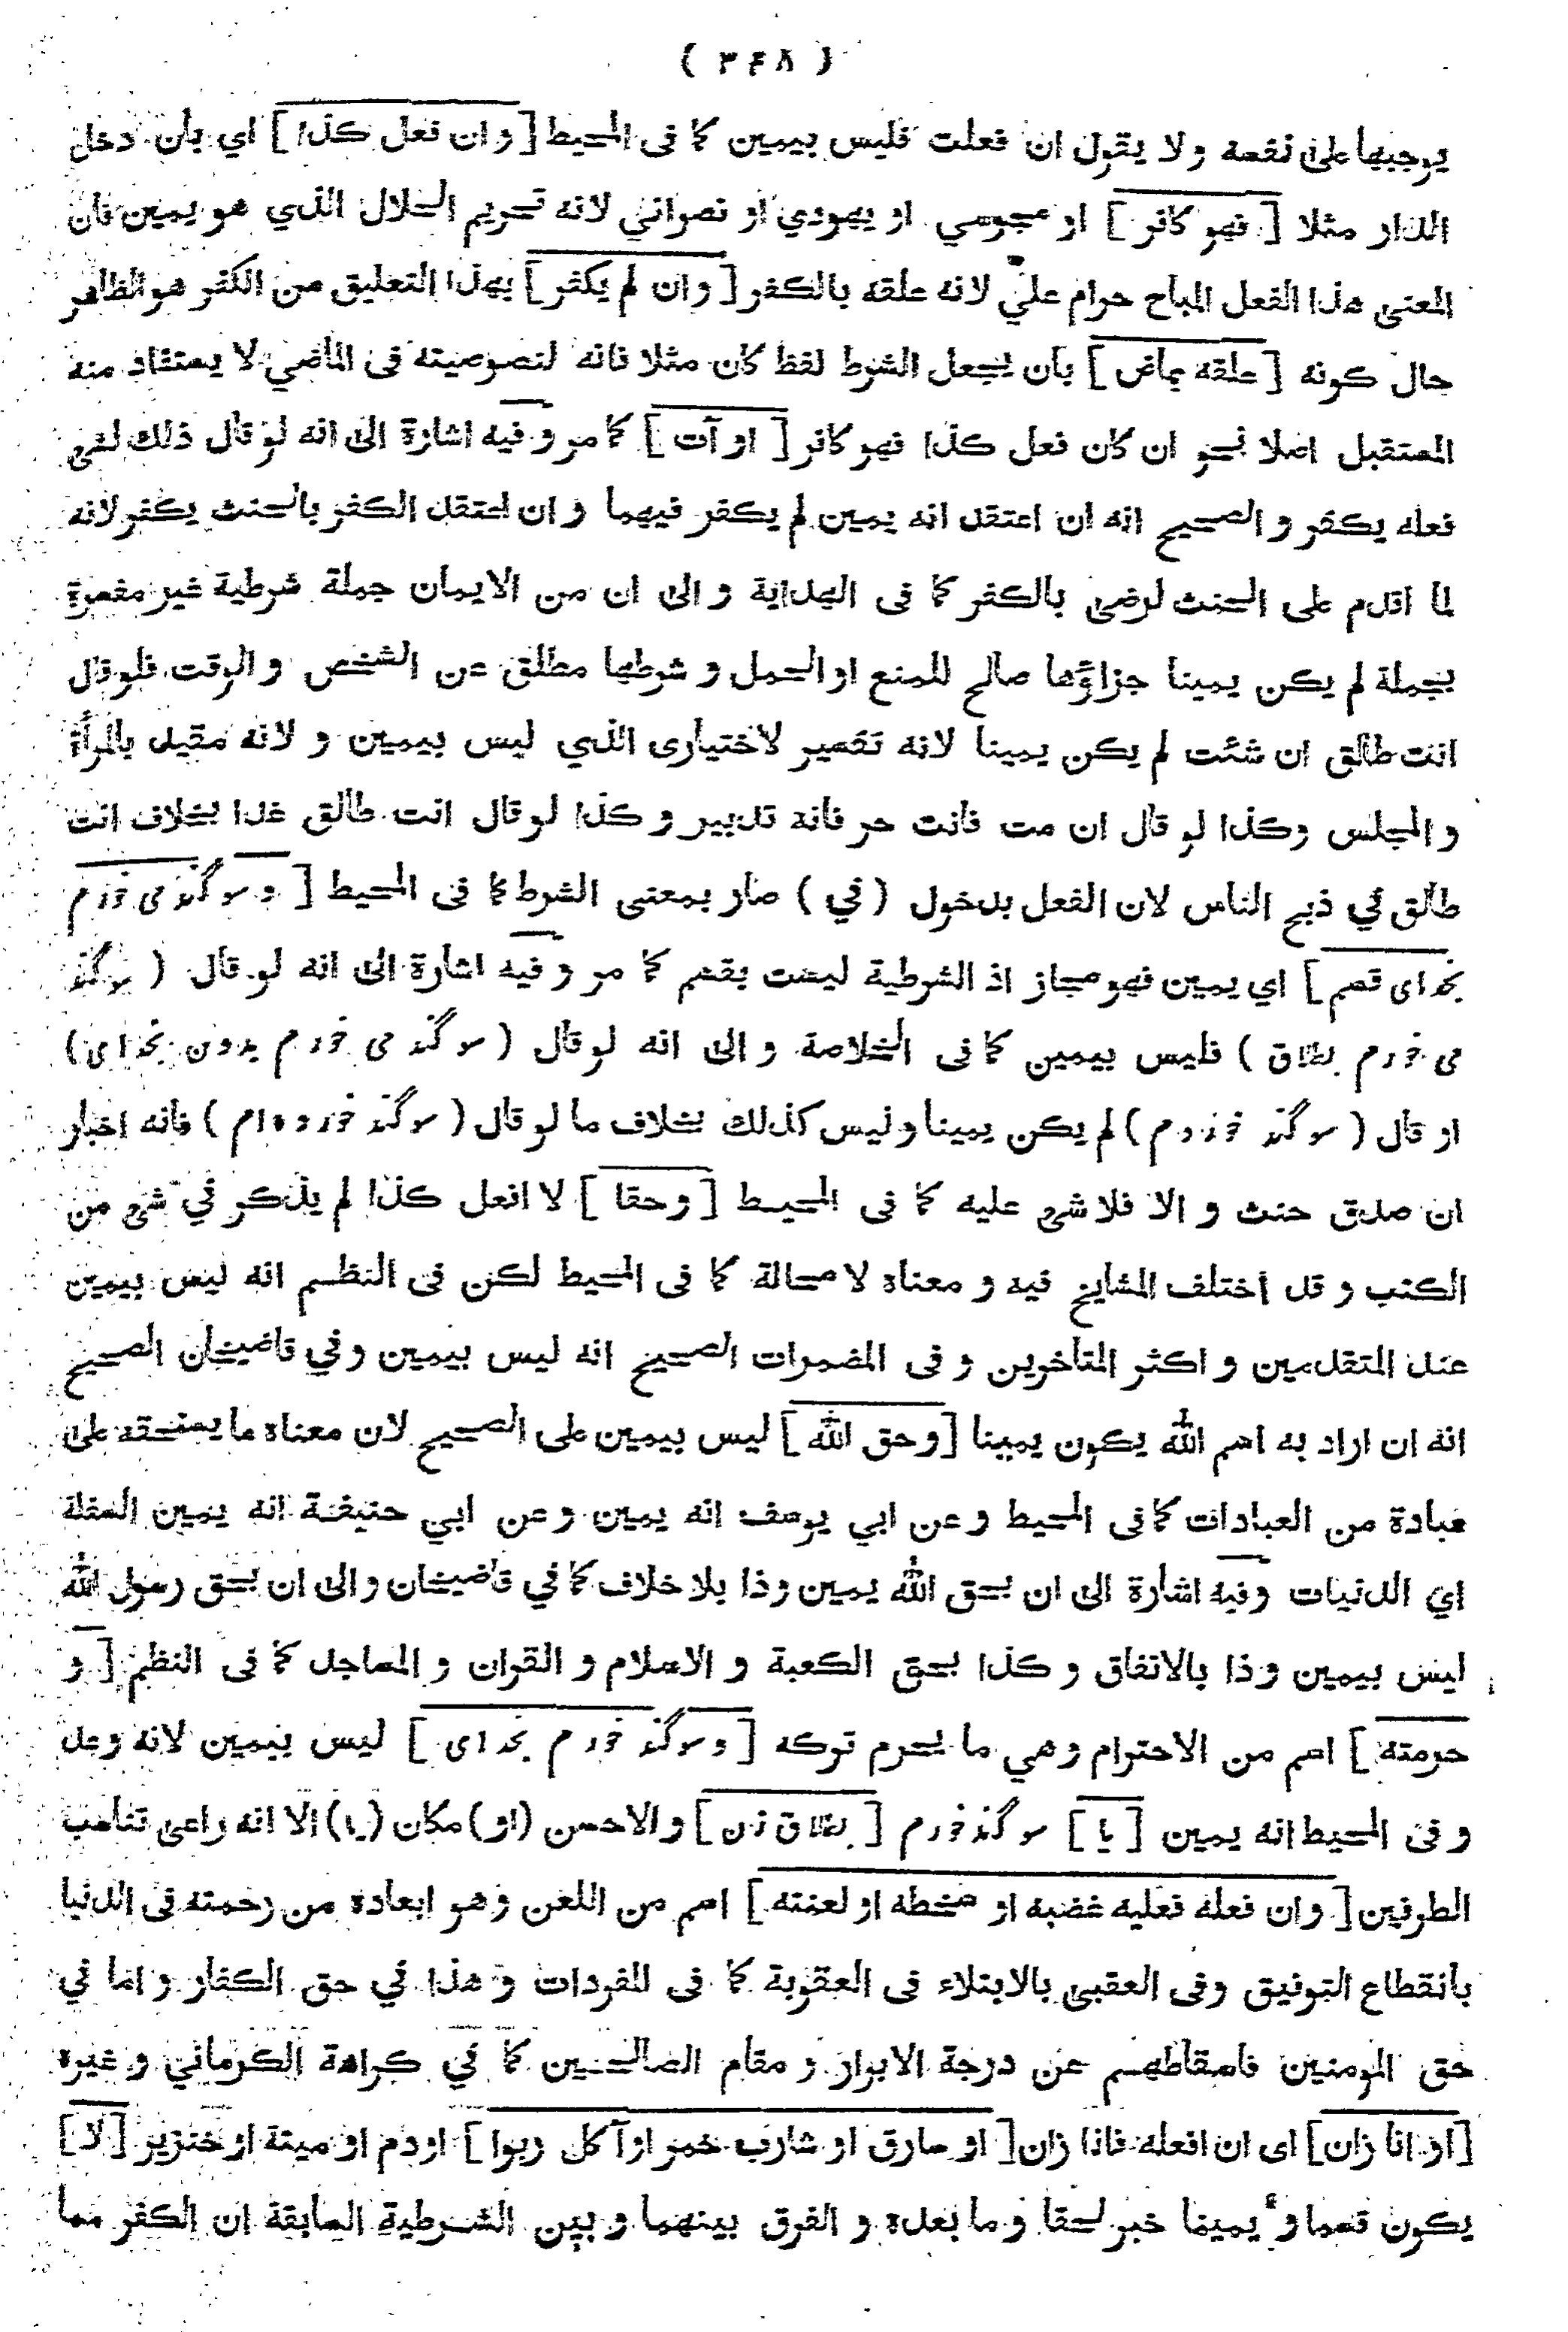 ( ٣٤٨ )
يوجبها على نفسه ولا يقول ان فعلت فليس بيمين كما فى المحيط [ وان فعل كذا ] اي بأن دخل
الدار مثلا [ فهو كافر ] او مجوسي او يهودي او نصراني لانه تحريم الحلال الذي هو يمين فان
المعنى هذا الفعل المباح حرام علي لانه علقه بالكفر [ وان لم يكفر ] بهذا التعليق من الكفر هو الظاهر
حال كونه [ علقه بماض ] بأن يجعل الشرط لفظ كان مثلا فانه لنصوصيته فى الماضي لا يستفاد منه
المستقبل اصلا نحو ان كان فعل كذا فهو كافر [ او آت ] كما مر وفيه اشارة الى انه لو قال ذلك لشئ
فعله يكفر و الصحيح انه ان اعتقد انه يمين لم يكفر فيهما و ان اعتقد الكفر بالحنث يكفر لانه
لما اقدم على الحنث لرضى بالكفر كما فى الهداية و الى ان من الايمان جملة شرطية غير مفسرة
بجملة لم يكن يمينا جزاؤها صالح للمنع او الحمل و شرطها مطلق عن الشخص و الوقت فلو قال
انت طالق ان شئت لم يكن يمينا لانه تفسير لاختيارى الذي ليس بيمين و لانه مقيد بالمرأة
و المجلس وكذا لو قال ان مت فأنت حر فانه تدبير و كذا لو قال انت طالق غدا بخلاف انت
طالق في ذبح الناس لان الفعل بدخول ( في ) صار بمعنى الشرط كما فى المحيط [ و سوگند مى خورم
بخداى قسم ] اي يمين فهو مجاز اذ الشرطية ليست بقسم كما مر و فيه اشارة الى انه لو قال ( سوگند
مى خورم بطلاق ) فليس بيمين كما فى الخلاصة و الى انه لو قال ( سوگند مى خورم بدون بخداى )
او قال ( سوگند خوردم ) لم يكن يمينا وليس كذلك بخلاف ما لو قال ( سوگند خورده ام ) فانه اخبار
ان صدق حنث و الا فلا شئ عليه كما فى المحيط [ وحقا ] لا افعل كذا لم يذكر في شئ من
الكتب و قد اختلف المشايخ فيه و معناه لا محالة كما فى المحيط لكن فى النظم انه ليس بيمين
عند المتقدمين و اكثر المتأخرين و فى المضمرات الصحيح انه ليس بيمين وفي قاضيخان الصحيح
انه ان اراد به اسم الله يكون يمينا [ وحق الله ] ليس بيمين على الصحيح لان معناه ما يستحقه على
عبادة من العبادات كما فى المحيط وعن ابي يوسف انه يمين و عن ابي حنيفة انه يمين السفلة
اي الدنيات وفيه اشارة الى ان بحق الله يمين وذا بلا خلاف كما في قاضيخان و الى ان بحق رسول الله
ليس بيمين وذا بالاتفاق و كذا بحق الكعبة و الاسلام و القران و المساجد كما فى النظم [ و
حرمته ] اسم من الاحترام وهي ما يحرم تركه [ و سوگند خورم بخداى ] ليس بيمين لانه وعد
و فى المحيط انه يمين [ يا ] سوگند خورم [ بطلاق زن ] و الاحسن (او) مكان (يا) الا انه راعى تناسب
الطرفين [ وان فعله فعليه غضبه او سخطه او لعنته ] اسم من اللعن وهو ابعاده من رحمته فى الدنيا
بأنقطاع التوفيق وفى العقبى بالابتلاء فى العقوبة كما فى المفردات و هذا في حق الكفار و اما في
حق المومنين فاسقاطهم عن درجة الابرار و مقام الصالحين كما في كراهة الكرماني و غيره
[ او انا زان ] اى ان افعله فانا زان [ او سارق او شارب خمر او آكل ربوا ] او دم او ميتة او خنزير [ لا ]
يكون قسما و يمينا خبر لحقا وما بعده و الفرق بينهما و بين الشرطية السابقة ان الكفر مما